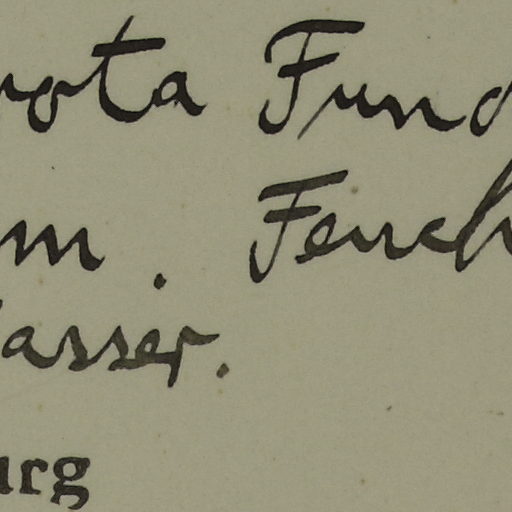 rota Fund
m. Feuch
asser.
urg